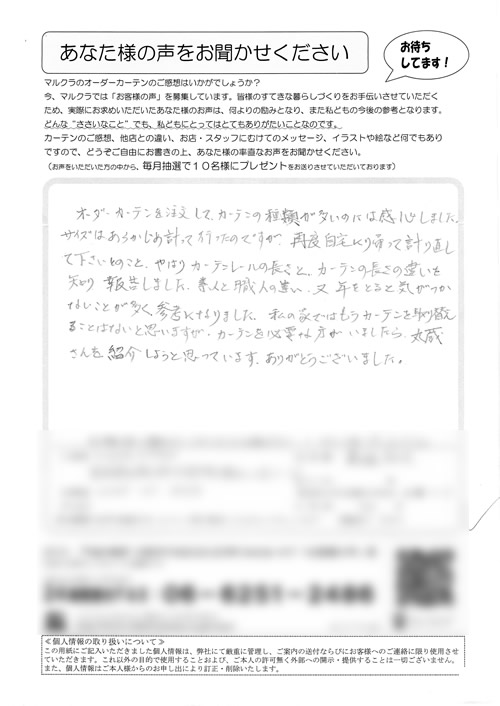 あなた様の声をお聞かせください
お待ち
してます!
マルクラのオーダーカーテンのご感想はいかがでしょうか?
今、マルクラでは「お客様の声」を募集しています。皆様のすてきな暮らしづくりをお手伝いさせていただく
ため、実際にお求めいただいたあなた様のお声は、何よりの励みとなり、また私どもの今後の参考となります。
どんな“ささいなこと”でも、私どもにとってはとてもありがたいことなのです。
カーテンのご感想、他店との違い、お店・スタッフにむけてのメッセージ、イラストや絵など何でもあり
ですので、どうぞご自由にお書きの上、あなた様の率直なお声をお聞かせください。
（お声をいただいた方の中から、毎月抽選で１０名様にプレゼントをお送りさせていただいております）
オーダーカーテンを注文して、カーテンの種類が多いのには感心しました。
サイズはあらかじめ計って行ったのですが、再度自宅より帰って計り直し
て下さいとのこと、やはりカーテンレールの長さと、カーテンの長さの違いを
知り報告しました。素人と職人の違い、又年をとると気がつか
ないことが多く参考になりました。私の家ではもうカーテンを取り替え
ることはないと思いますが、カーテンを必要な方がいましたら、丸蔵
さんを紹介しようと思っています。ありがとうございました。
06-6251-2486
≪個人情報の取り扱いについて≫
この用紙にご記入いただきました個人情報は、弊社にて厳重に管理し、ご案内の送付ならびにお客様へのご連絡に限り使用させ
ていただきます。これ以外の目的で使用することおよび、ご本人の許可無く外部への開示・提供することは一切ございません。
また、個人情報はご本人様からのお申し出により訂正・削除いたします。